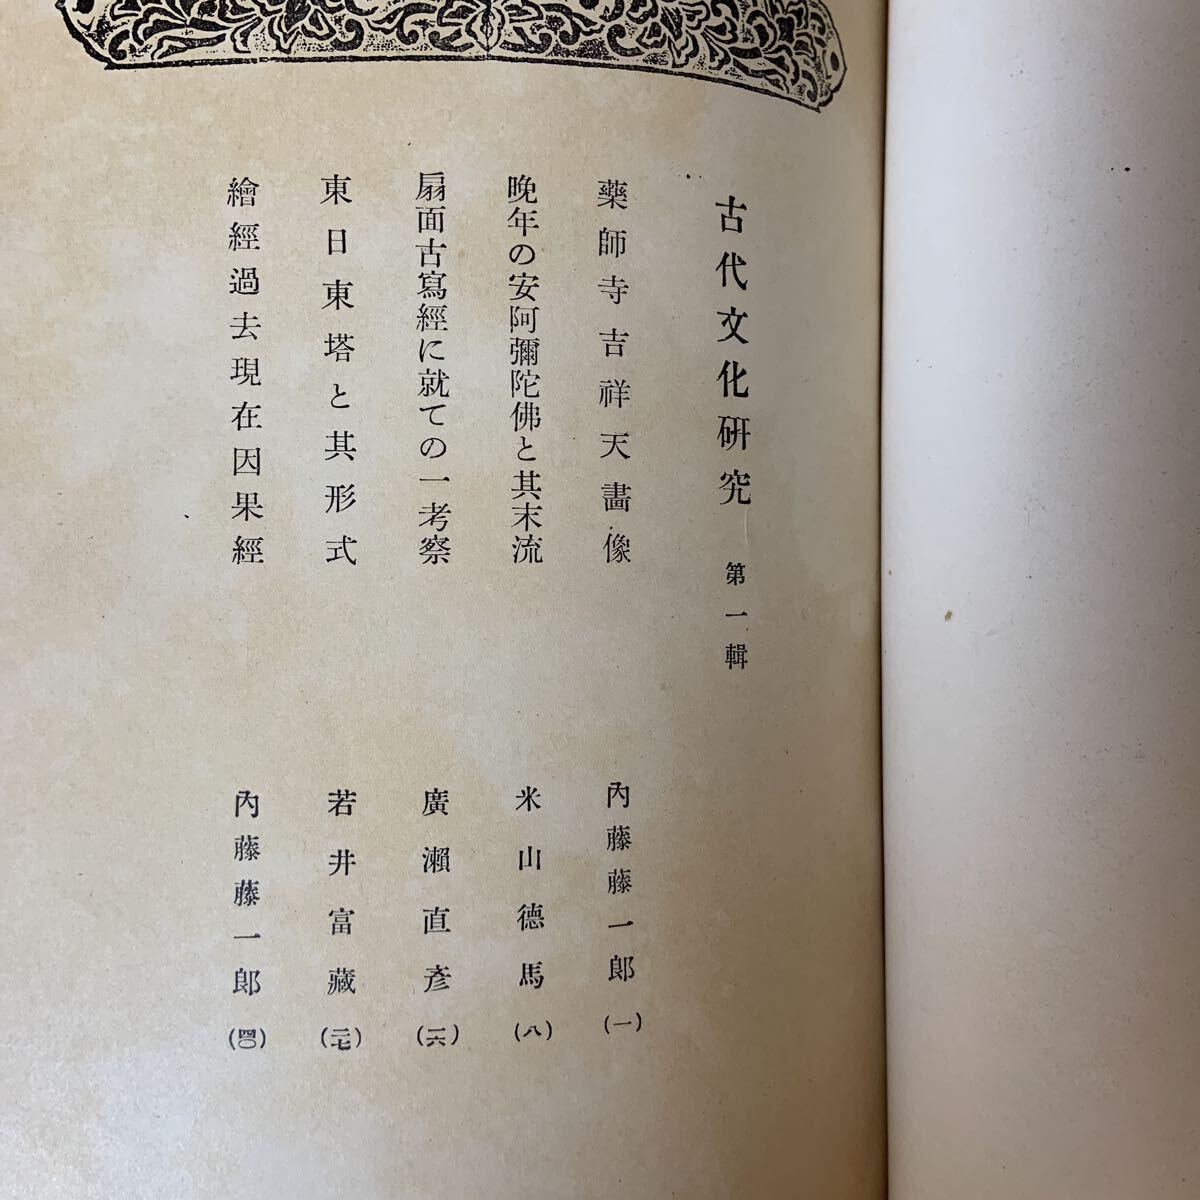 古代文化研究 第一輯
藥師寺吉祥天畵像 內藤藤一郎 (一)
晚年の安阿彌陀佛と其末流 米山德馬 (八)
扇面古寫經に就ての一考察 廣瀨直彥 (一六)
東日東塔と其形式 若井富藏 (二七)
繪經過去現在因果經 內藤藤一郎 (四〇)